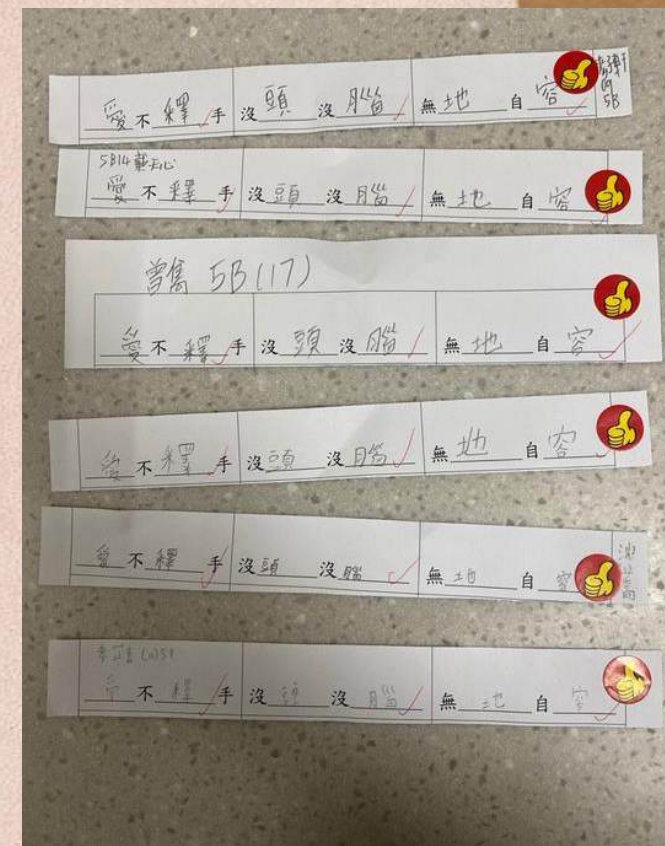 愛不釋手 沒頭沒腦 無地自容
5B
5B14
愛不釋手 沒頭沒腦 無地自容
曾雋 5B (17)
愛不釋手 沒頭沒腦 無地自容
愛不釋手 沒頭沒腦 無地自容
愛不釋手 沒頭沒腦 無地自容
愛不釋手 沒頭沒腦 無地自容